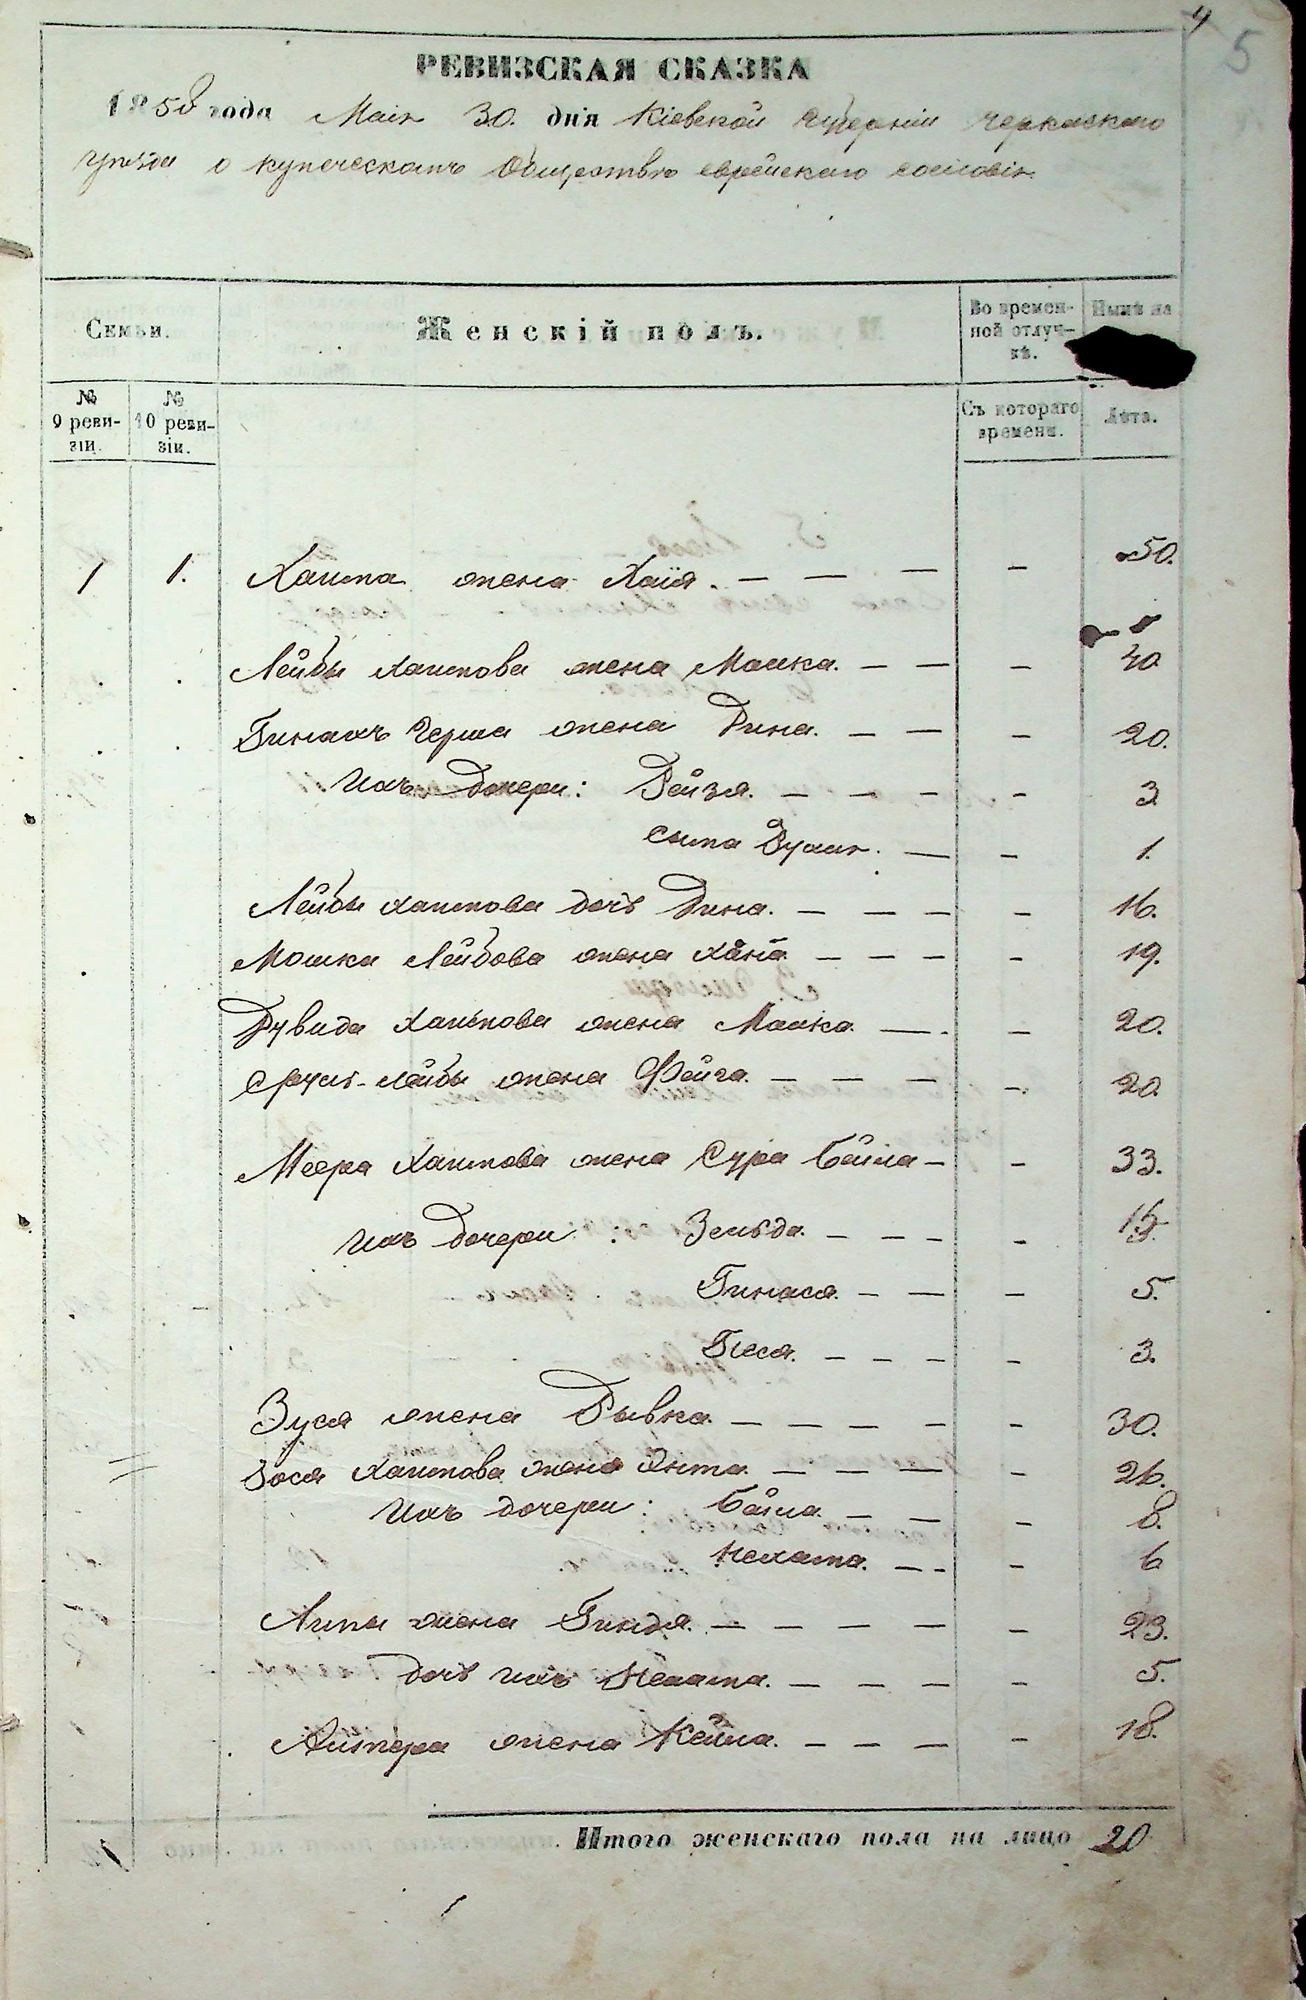 4
5
РЕВИЗСКАЯ СКАЗКА
1858 года Маія 30. дня Кіевской Губерніи Черкаскаго
уѣзда о купеческомъ Обществѣ еврейскаго сословія.
Семьи.
Женскій полъ.
Во времен-
ной отлуч-
кѣ.
Нынѣ на
№
9 реви-
зіи.
№
10 реви-
зіи.
Съ котораго
времени.
Лѣта.
1 1. Хаима жена Хая. — — — — 50.
Лейбы Хаимова жена Малка. — — — 40
Герша жена Дина. — — — 20.
Ихъ дочери: Рейзя. — — — — 3
Сыма — — 1.
Лейбы Хаимова дочь Дина. — — — — 16.
Мошка Лейбова жена Хана — — — — 19.
Дувида Хаимова жена Малка — — 20.
Сруль-Лейбы жена Фейга. — — — — 20.
Меера Хаимова жена Сура Бейла — — 33.
Ихъ дочери: Зельда. — — — — 15.
— — — 5.
Песя. — — — — 3.
Зуся жена Рывка — — — — — 30.
Зося Хаимова жена Энта — — — — 26.
Ихъ дочери: Бейла — — — 8.
Нехама. — — — 6
Липы жена Гиндя. — — — — — 23.
дочь ихъ Нехама. — — — — 5.
жена Кейла. — — — — 18.
Итого женскаго пола на лицо 20